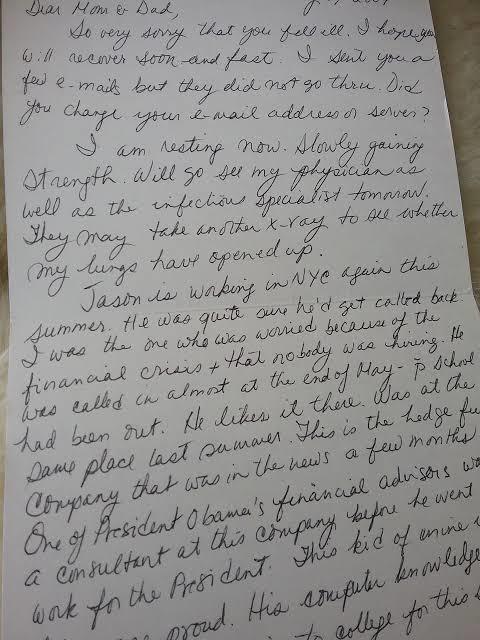 Dear Mom & Dad,
So very sorry that you fell ill. I hope you
will recover soon and fast. I sent you a
few e-mails but they did not go thru. Did
you change your e-mail address or server?
I am resting now. Slowly gaining
strength. Will go see my physician as
well as the infectious specialist tomorrow.
They may take another x-ray to see whether
my lungs have opened up.
Jason is working in NYC again this
summer. He was quite sure he'd get called back
I was the one who was worried because of the
financial crisis & that nobody was hiring. He
was called in almost at the end of May - p̄ school
had been out. He likes it there. Was at the
same place last summer. This is the hedge fu
company that was in the news a few months
One of President Obama's financial advisors wa
a consultant at this company before he went
work for the President. This kind of
proud. His computer knowledge
college for this